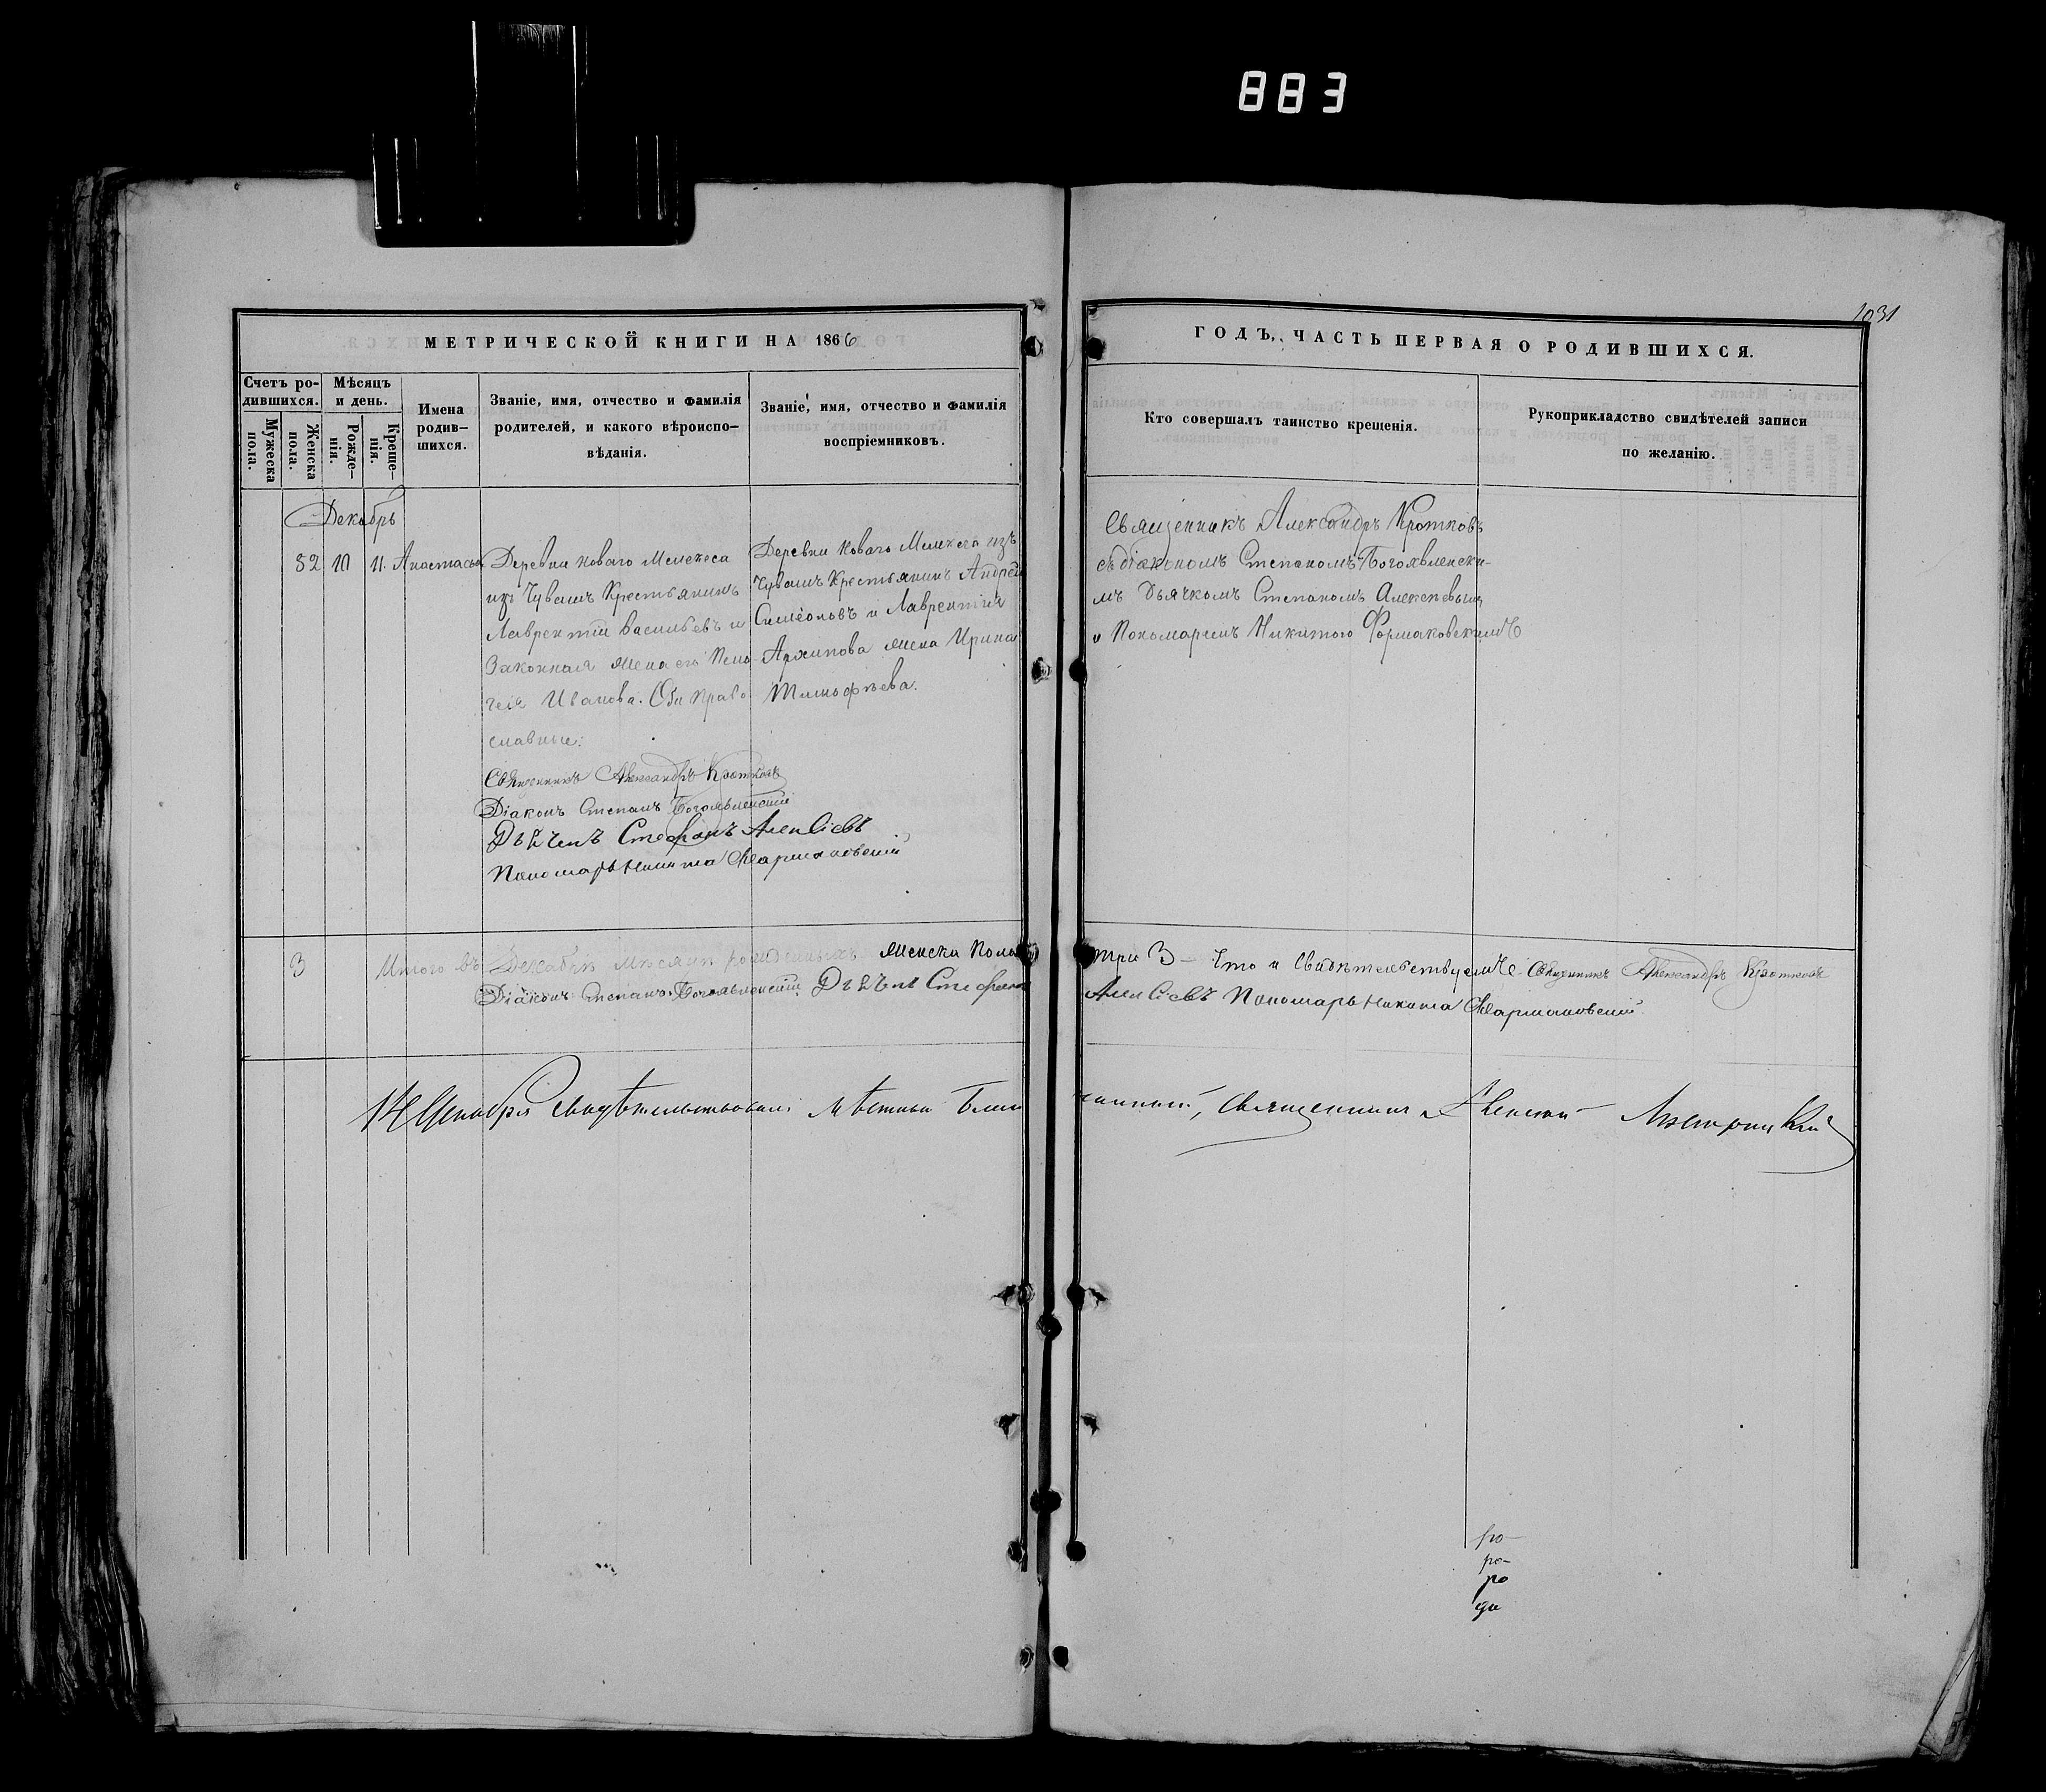 883
1031
МЕТРИЧЕСКОЙ КНИГИ НА 1866
ГОДЪ, ЧАСТЬ ПЕРВАЯ О РОДИВШИХСЯ.
Счетъ ро-
дившихся.
Мужеска
пола.
Женска
пола.
Мѣсяцъ
и день.
Рожде-
нія.
Креще-
нія.
Имена
родив-
шихся.
Званіе, имя, отчество и фамилія
родителей, и какого вѣроиспо-
вѣданія.
Званіе, имя, отчество и фамилія
воспріемниковъ.
Кто совершалъ таинство крещенія.
Рукоприкладство свидѣтелей записи
по желанію.
Декабрь
52 10 11. Анастасья
Деревни Новаго Мелекеса
изъ Чувашъ Крестьянинъ
Лаврентій Васильевъ и
Законная жена его Пела-
гія Иванова. Оби право-
славные.
Священникъ Александръ Кротковъ
Діаконъ Степанъ Богоявленскій
Стефанъ
Пономарь Никита
Деревни Новаго Мелекеса изъ
Чувашъ Крестьянинъ Андрей
Симеоновъ и Лаврентія
Архипова жена Ирина
Тимофѣева.
Священникъ Александръ Кротковъ
съ діакономъ Степаномъ Богоявленски-
мъ Дьячкомъ Степаномъ
и Пономаремъ Никитою
3 Итого въ Декабрѣ мѣсяцѣ рожденныхъ женска пола
три 3 - Что и свидѣтельствуемъ: Священникъ Александръ Кротковъ
Діаконъ Степанъ Богоявленскій
Пономарь Никита
Декабря свидѣтельствовалъ
священникъ
ро-
ро-
ро
ди